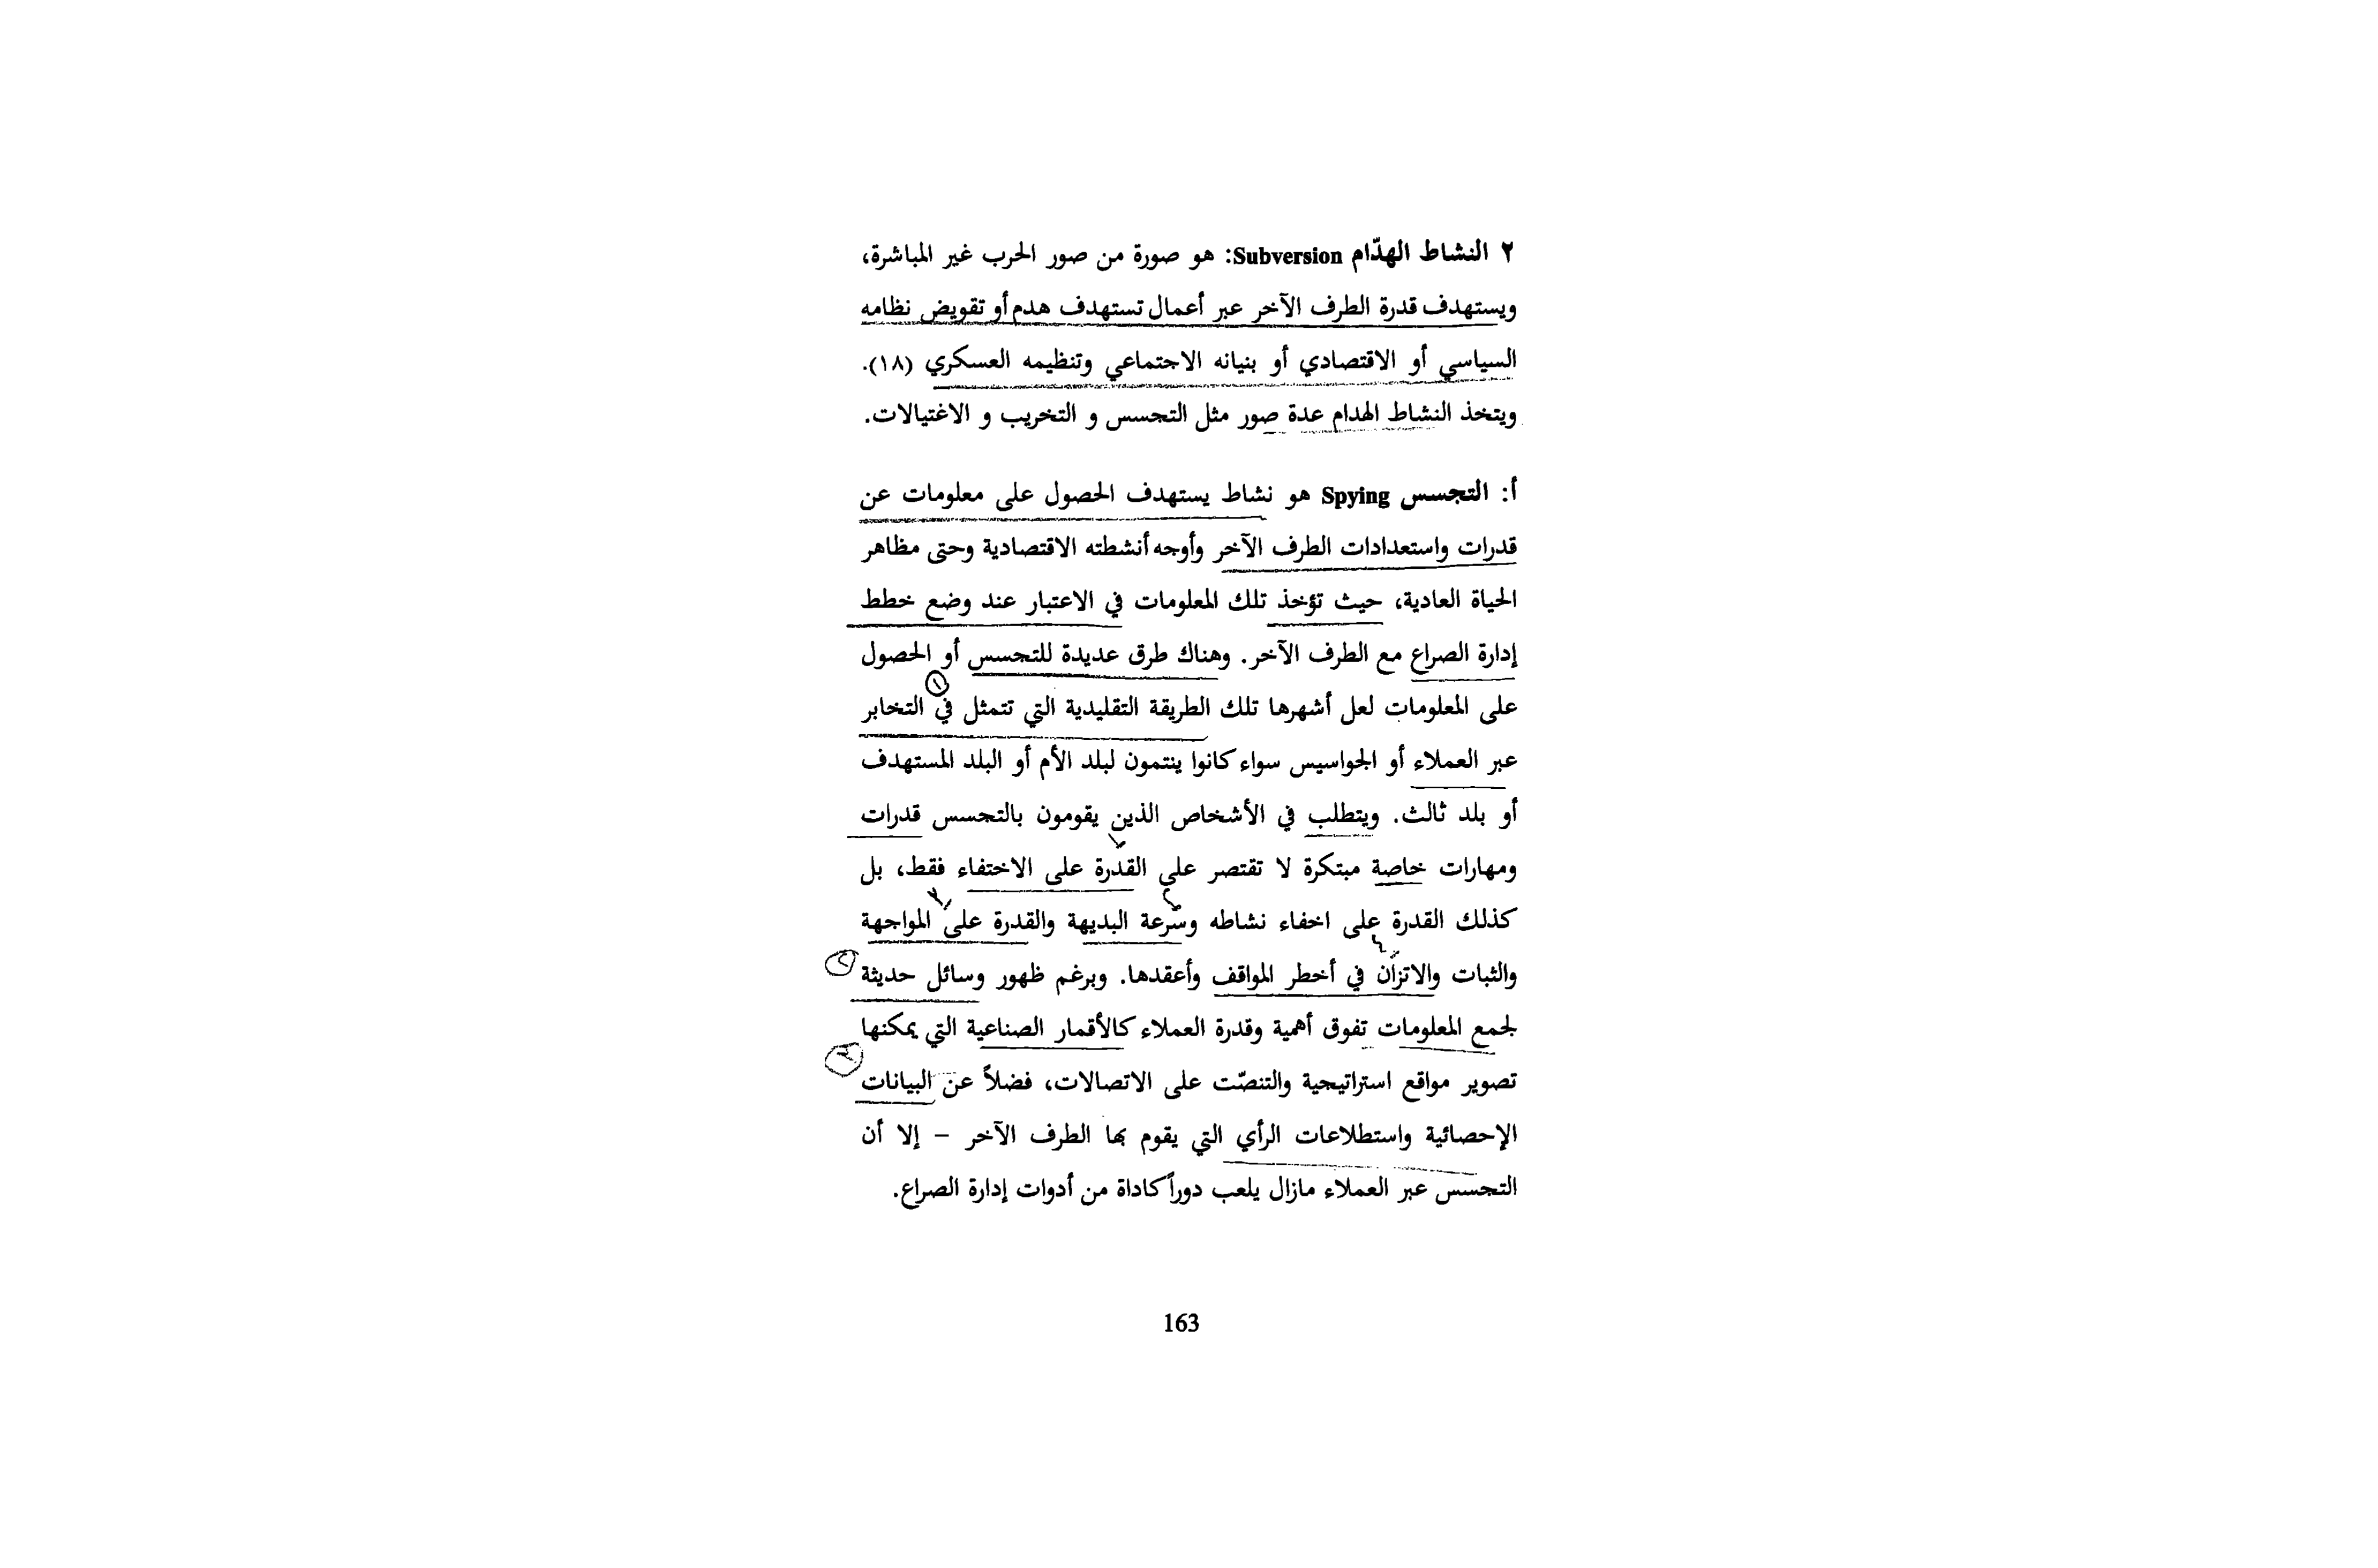 ٢ النشاط الهدّام Subversion: هو صورة من صور الحرب غير المباشرة،
ويستهدف قدرة الطرف الآخر عبر أعمال تستهدف هدم أو تقويض نظامه
السياسي أو الاقتصادي أو بنيانه الاجتماعي وتنظيمه العسكري (١٨).
ويتخذ النشاط الهدام عدة صور مثل التجسس و التخريب و الاغتيالات.
أ: التجسس Spying هو نشاط يستهدف الحصول على معلومات عن
قدرات واستعدادات الطرف الآخر وأوجه أنشطته الاقتصادية وحتى مظاهر
الحياة العادية، حيث تؤخذ تلك المعلومات في الاعتبار عند وضع خطط
إدارة الصراع مع الطرف الآخر. وهناك طرق عديدة للتجسس أو الحصول
١
على المعلومات لعل أشهرها تلك الطريقة التقليدية التي تتمثل في التخابر
عبر العملاء أو الجواسيس سواء كانوا ينتمون لبلد الأم أو البلد المستهدف
أو بلد ثالث. ويتطلب في الأشخاص الذين يقومون بالتجسس قدرات
١
ومهارات خاصة مبتكرة لا تقتصر على القدرة على الاختفاء فقط، بل
٢ ٣
كذلك القدرة على اخفاء نشاطه وسرعة البديهة والقدرة على المواجهة
٤
والثبات والاتزان في أخطر المواقف وأعقدها. وبرغم ظهور وسائل حديثة ٢
لجمع المعلومات تفوق أهمية وقدرة العملاء كالأقمار الصناعية التي يمكنها
٣
تصوير مواقع استراتيجية والتنصّت على الاتصالات، فضلاً عن البيانات
الإحصائية واستطلاعات الرأي التي يقوم بها الطرف الآخر – إلا أن
التجسس عبر العملاء مازال يلعب دوراً كاداة من أدوات إدارة الصراع.
163